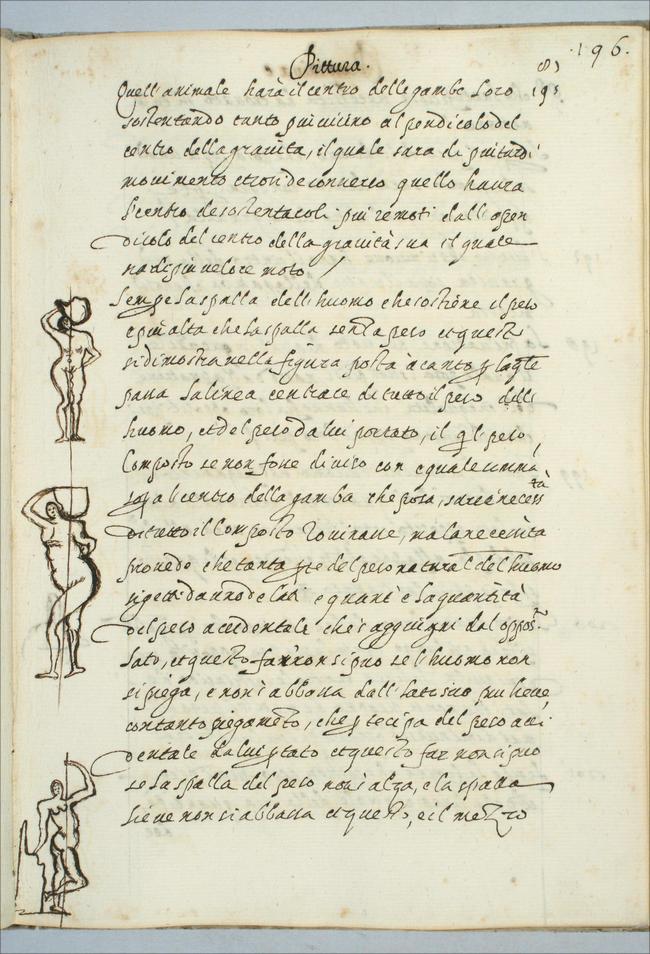 ·196·
Pittura.
Quell'animale harà il centro delle gambe loro
195
sostentando tanto piu uicino al pendicolo del
centro della grauita, il quale sara di piu tardi
mouimento et cosi de conuerso quello haura
il centro de sostentacoli piu remoti dall
dicolo del centro della grauità sua il quale
ra di piu ueloce moto /
Sempe la spalla dell'huomo che sostiene il peso
e piu alta che la spalla senza peso et questo
si dimostra nella figura posta à canto p la qle
passa la linea centrale di tutto il peso dell
huomo, et del peso da lui portato, il ql peso
Composto se non fosse diuiso con equale somma
sop al centro della gamba che posa, sarea necess
tà
che tutto il Composto rouinasse, ma la necessita
prouede che tanta pte del peso natural del huomo
si getti da uno de lati e quant'e la quantità
del peso accidentale che s'aggiugni dal oppos.
lato, et questo far non si puo se l'huomo non
si piega, e non s'abbassa dall lato suo piu lieue,
con tanto piegameto, che ptecipa del peso acci
dentale da lui ptato et questo far non si puo
se la spalla del peso non s'alza, e la spalla
lieue non s'abbassa et questo, e il mezzo